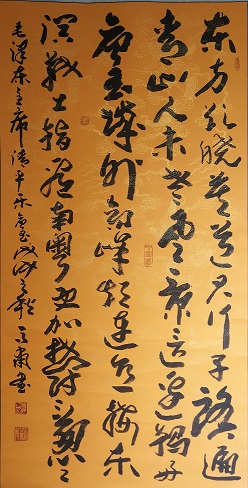 东方欲晓莫道君行早踏遍
青山人未老风景这边独好
会昌城外高峰颠连直接东
溟战士指看南粤更加郁郁葱葱
毛泽东主席清平乐会昌 书